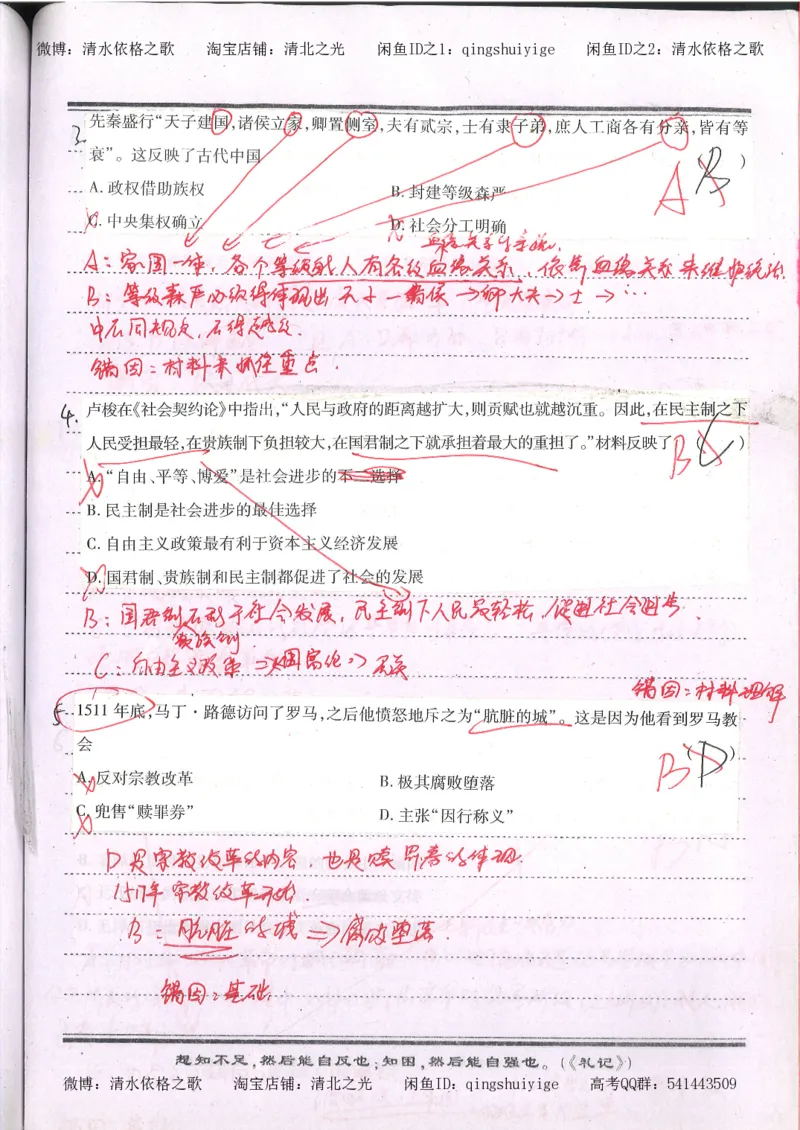 微博：清水依格之歌 淘宝店铺：清北之光 闲鱼ID之1：qingshuiyige 闲鱼ID之2：清水依格之歌
3. 先秦盛行“天子建国,诸侯立家,卿置侧室,夫有贰宗,士有隶子弟,庶人工商各有分亲,皆有等
衰”。这反映了古代中国 （B） A
A. 政权借助族权 B. 封建等级森严
C. 中央集权确立 D. 社会分工明确
血缘关系
A：家国一体，各个等级的人有各级血缘关系，依靠血缘关系来维护统治
B：等级森严必须得体现出天子—诸侯→卿大夫→士→…
中石间
错因：材料未抓住重点．
4. 卢梭在《社会契约论》中指出,“人民与政府的距离越扩大,则贡赋也就越沉重。因此,在民主制之下
人民受担最轻,在贵族制下负担较大,在国君制之下就承担着最大的重担了。”材料反映了（C） B
A. “自由、平等、博爱”是社会进步的不二选择
B. 民主制是社会进步的最佳选择
C. 自由主义政策最有利于资本主义经济发展
D. 国君制、贵族制和民主制都促进了社会的发展
B：国君制不利于社会发展，民主制下人民最轻松，促进社会进步．
贵族制
C：自由主义政策
错因：材料理解
5 1511年底,马丁·路德访问了罗马,之后他愤怒地斥之为“肮脏的城”。这是因为他看到罗马教
会 （D） B
A. 反对宗教改革 B. 极其腐败堕落
C. 兜售“赎罪券” D. 主张“因行称义”
D是宗教改革的内容，也是赎罪券的体现．
1517年宗教改革开始
B：肮脏的城⇒腐败堕落．
错因：基础
想知不足,然后能自反也;知困,然后能自强也。(《礼记》)
微博：清水依格之歌 淘宝店铺：清北之光 闲鱼ID：qingshuiyige 高考QQ群：541443509